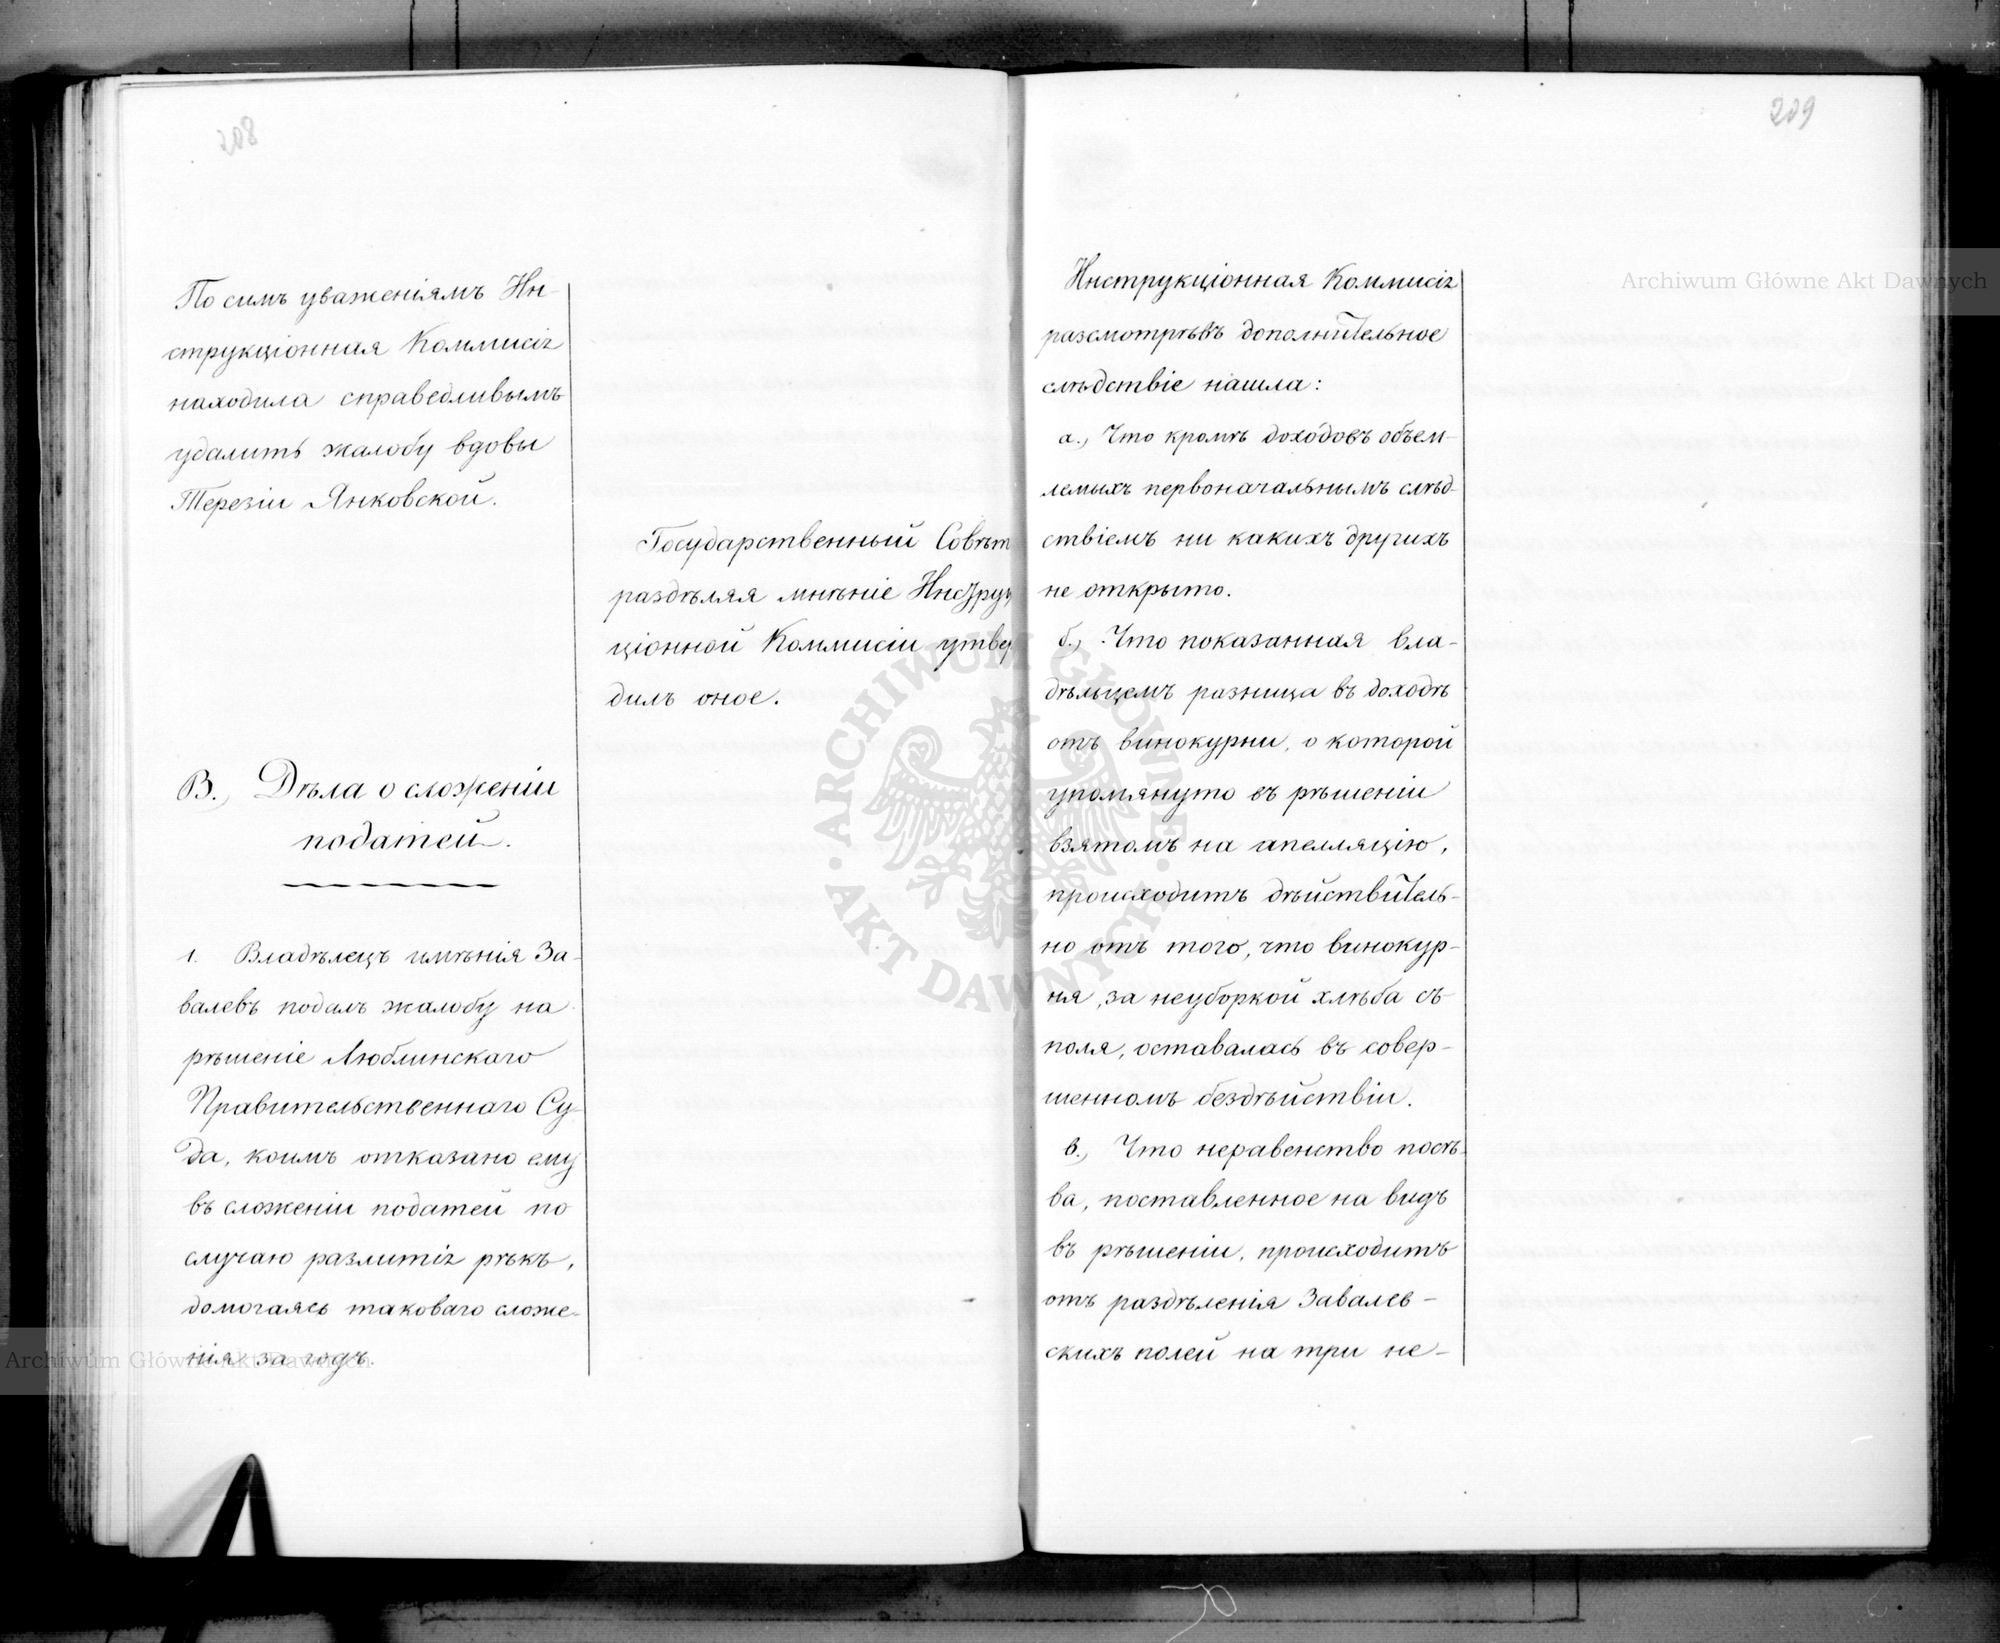 208
По симъ уваженіямъ Ин-
струкціонная Коммисія
находила справедливымъ
удалить жалобу вдовы
Терезіи Янковской.
Государственный Совѣт
раздѣляя мнѣніе Инстру
ціонной Коммисіи утвер
дилъ оное.
В., Дѣла о сложеніи
податей.
1. Владѣлецъ имѣнія За-
валевъ подалъ жалобу на
рѣшеніе Люблинскаго
Правительственнаго Су-
да, коимъ отказано ему
въ сложеніи податей по
случаю разлитія рѣкъ,
домогаясь таковаго сложе-
нія за годъ.
209
Инструкціонная Коммисія
разсмотрѣвъ дополнительное
слѣдствіе нашла:
а., Что кромѣ доходовъ объем-
лемыхъ первоначальнымъ слѣд-
ствіемъ ни какихъ другихъ
не открыто.
б., Что показанная вла-
дѣльцемъ разница въ доходѣ
отъ винокурни, о которой
упомянуто въ рѣшеніи
взятомъ на апелляцію,
происходитъ дѣйствитель-
но отъ того, что винокур-
ня, за неуборкой хлѣба съ
поля, оставалась въ совер-
шенномъ бездѣйствіи.
в., Что неравенство посѣ-
ва, поставленное на видъ
въ рѣшеніи, происходитъ
отъ раздѣленія Завалев-
скихъ полей на три не-
Archiwum Główne Akt Dawnych
Archiwum Główne Akt Dawnych
ARCHIWUM GŁÓWNE · AKT DAWNYCH ·